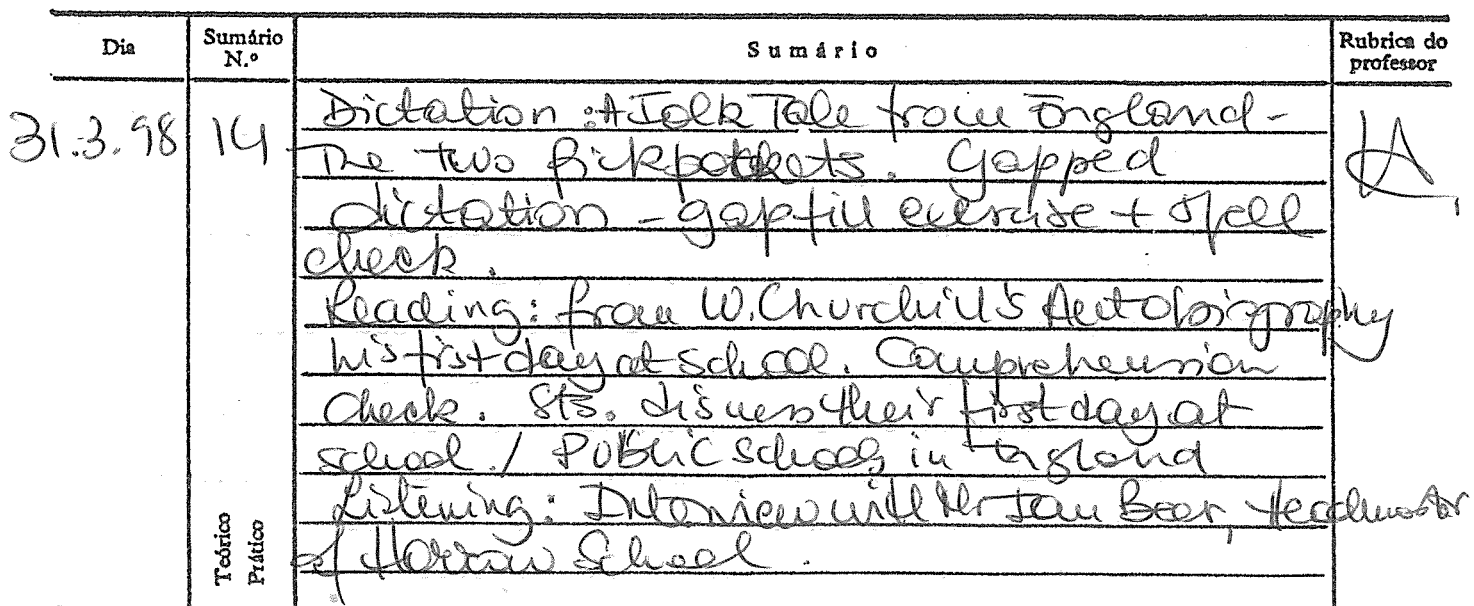 Dia Sumário N.º Sumário Rubrica do professor
31.3.98 14 Dictation: A Folk Tale from England -
The two Pickpockets. Gapped
dictation - gap fill exercise + spell
check.
Reading: from W. Churchill's Autobiography
his first day at school. Comprehension
check. Sts. discuss their first day at
school. / Public schools in England
Listening: Interview with Mr Ian Beer, Headmaster
of Harrow School.
Teórico
Prático